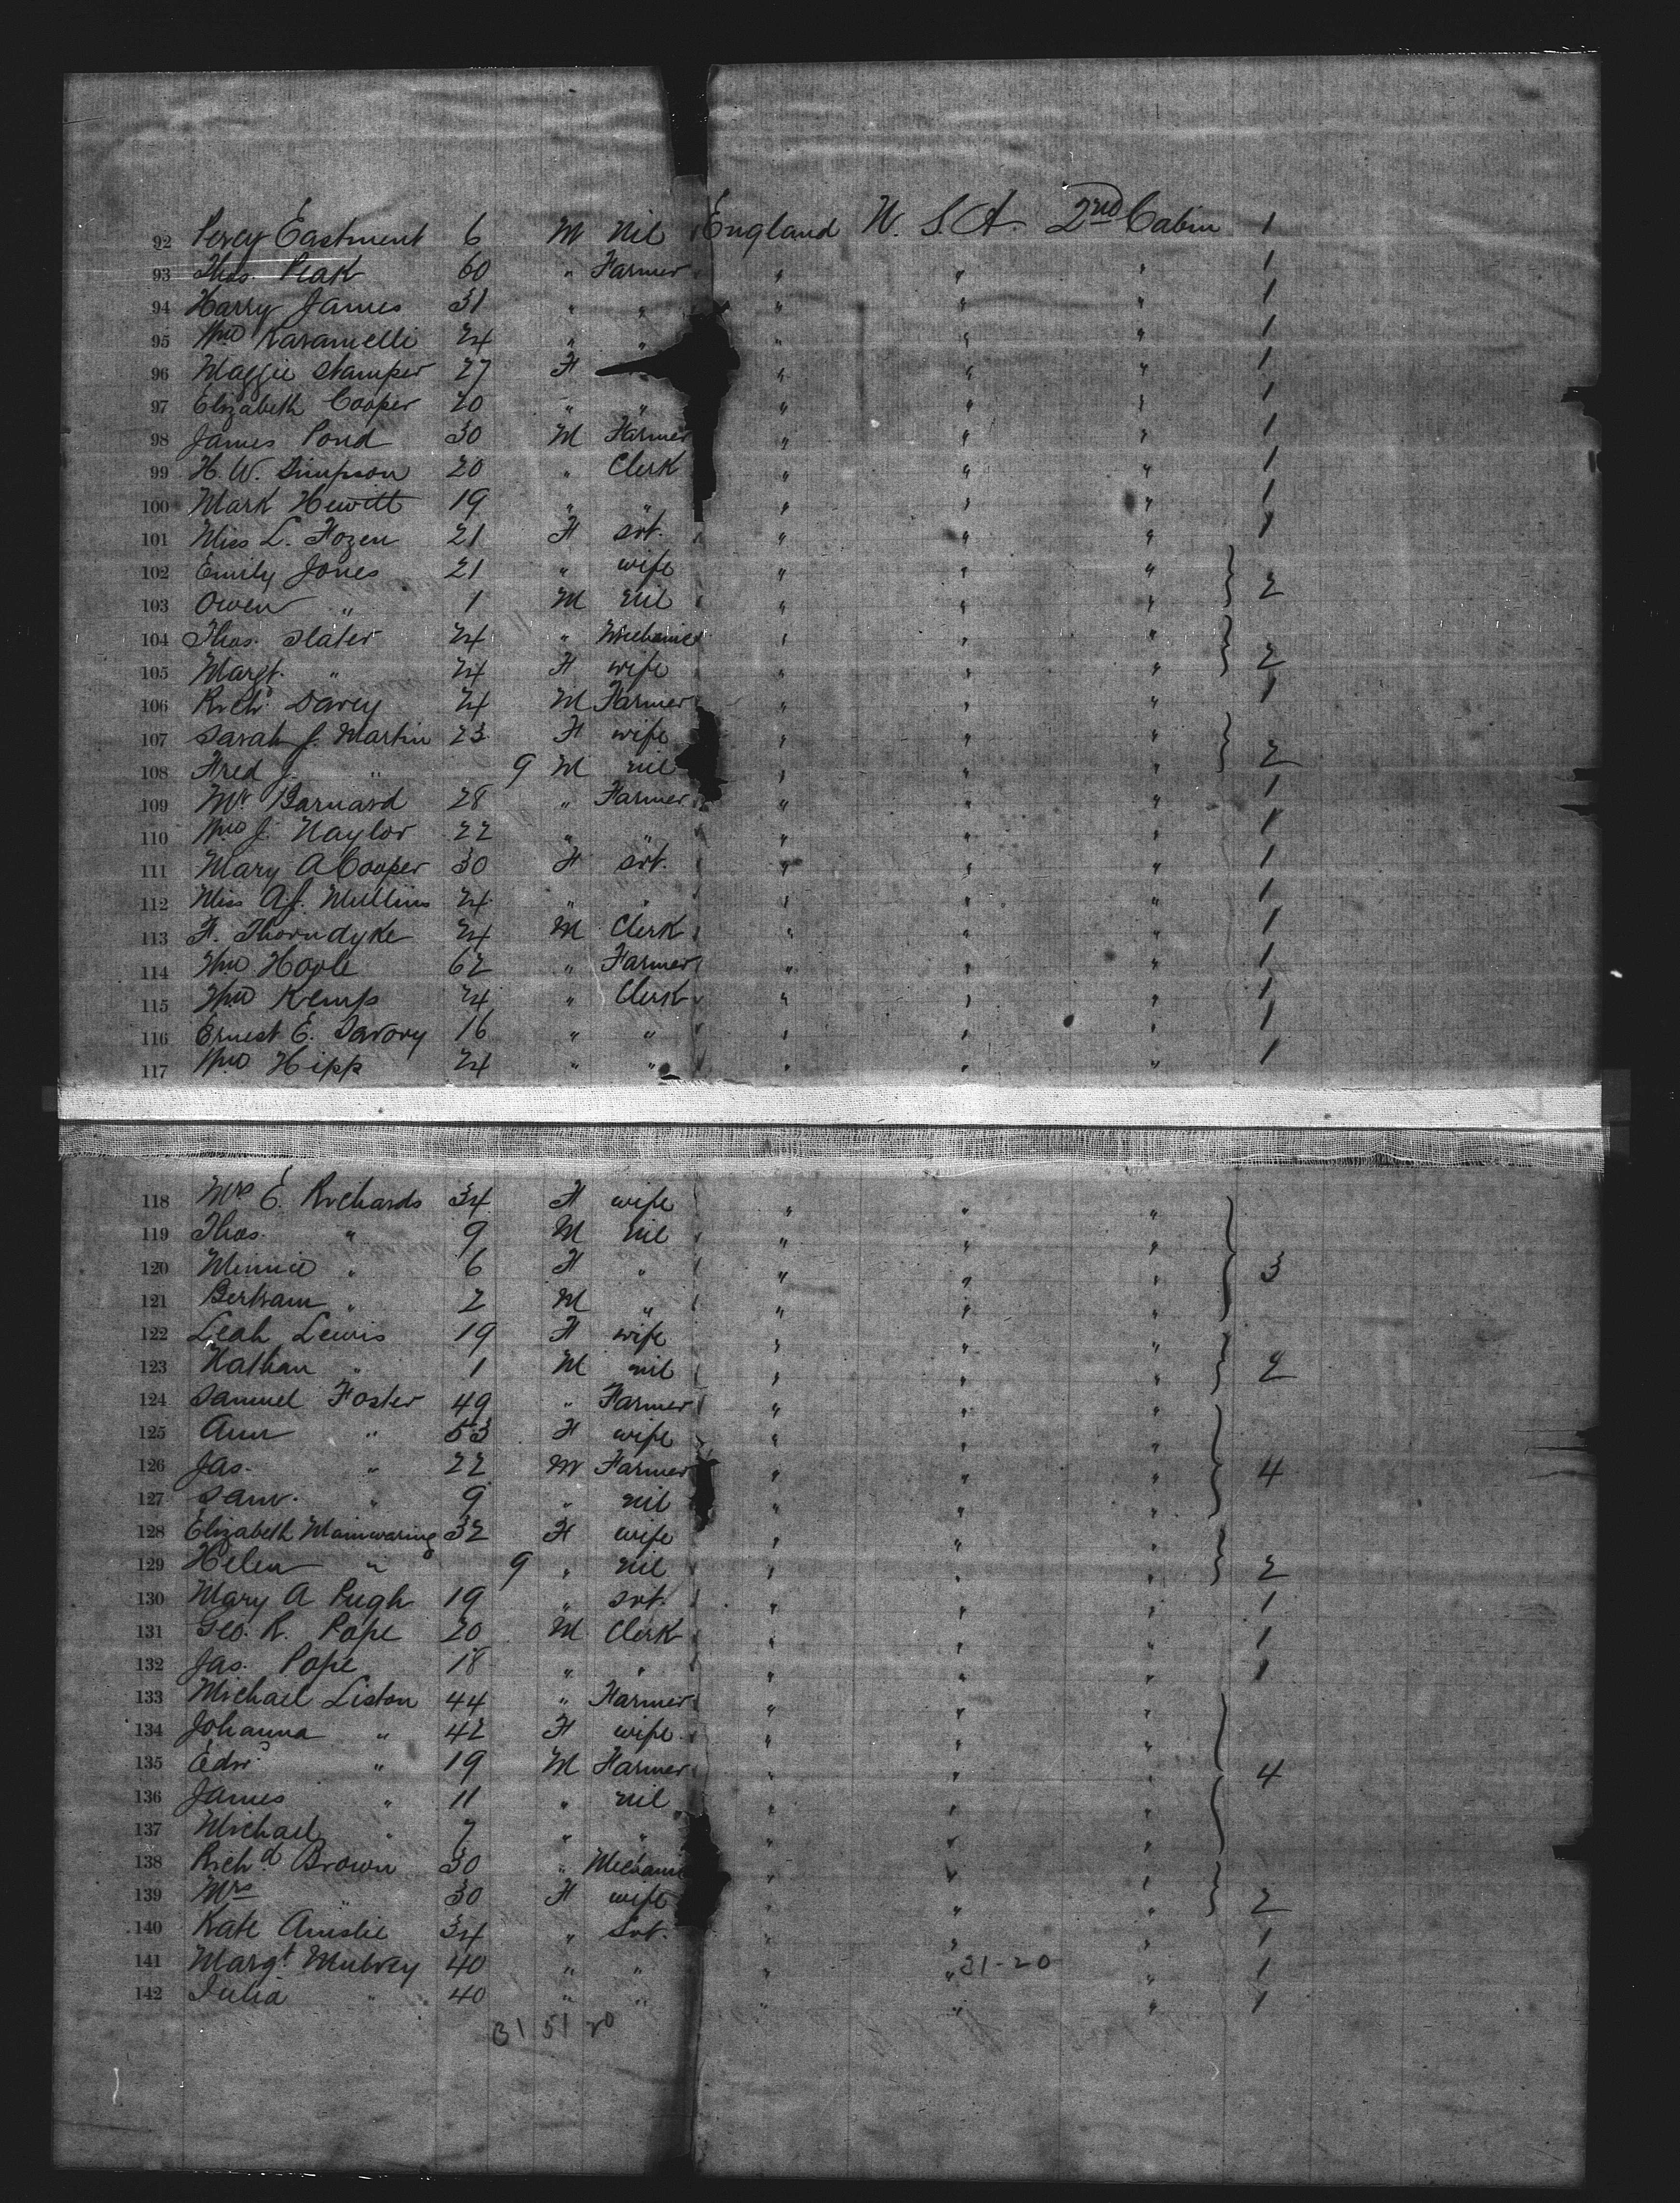 92 Percy Eastment 6 M Nil England U. S. A. 2nd Cabin 1
93 Thos. Peak 60 " Farmer " " " 1
94 Harry James 31 " " " " " 1
95 Wm 24 " " " " " 1
96 Maggie Stamper 27 F " " " 1
97 Elizabeth Cooper 20 " " " " " 1
98 James Pond 30 M Farmer " " " 1
99 H. W. Simpson 20 " Clerk " " " 1
100 Mark Hewitt 19 " " " " " 1
101 Miss L. Fozen 21 F svt. " " " 1
102 Emily Jones 21 " wife " " " } 2
103 Owen " 1 M nil " " "
104 Thos. Slater 24 " Mechanic " " " } 2
105 Margt. " 24 F wife " " "
106 Richd Davey 24 M Farmer " " " 1
107 Sarah J. Martin 23 F wife " " " } 2
108 Fred J. " 9 M nil " " "
109 Mr Barnard 28 " Farmer " " " 1
110 Wm J. Naylor 22 " " " " " 1
111 Mary A Cooper 30 F svt. " " " 1
112 Miss A.J. Mullins 24 " " " " " 1
113 F. Thorndyke 24 M Clerk " " " 1
114 Wm Hoole 62 " Farmer " " " 1
115 Wm Kemp 24 " Clerk " " " 1
116 Ernest E. Savory 16 " " " " " 1
117 Wm Hipp 24 " " " " " 1
118 Mrs E. Richards 34 F wife " " " } 3
119 Thos. " 9 M nil " " "
120 Minnie " 6 F " " " "
121 Bertram " 2 M " " " "
122 Leah Lewis 19 F wife " " " } 2
123 Nathan " 1 M nil " " "
124 Samuel Foster 49 " Farmer " " " } 4
125 Ann " 53 F wife " " "
126 Jas. " 22 M Farmer " " "
127 Saml. " 9 " nil " " "
128 Elizabeth Mainwaring 32 F wife " " " } 2
129 Helen " 9 " nil " " "
130 Mary A Pugh 19 " svt. " " " 1
131 Geo. R. Pope 20 M Clerk " " " 1
132 Jas. Pope 18 " " " " " 1
133 Michael Liston 44 " Farmer " " " } 4
134 Johanna " 42 F wife " " "
135 Edwd " 19 M Farmer " " "
136 James " 11 " nil " " "
137 Michael " 7 " " " " "
138 Richd Brown 30 " Mechani " " " } 2
139 Mrs " 30 F wife " " "
140 Kate Ainslie 34 " Svt. " " " 1
141 Margt Mulvey 40 " " " " 31-20 " 1
142 Julia " 40 " " " " " 1
31 51 20